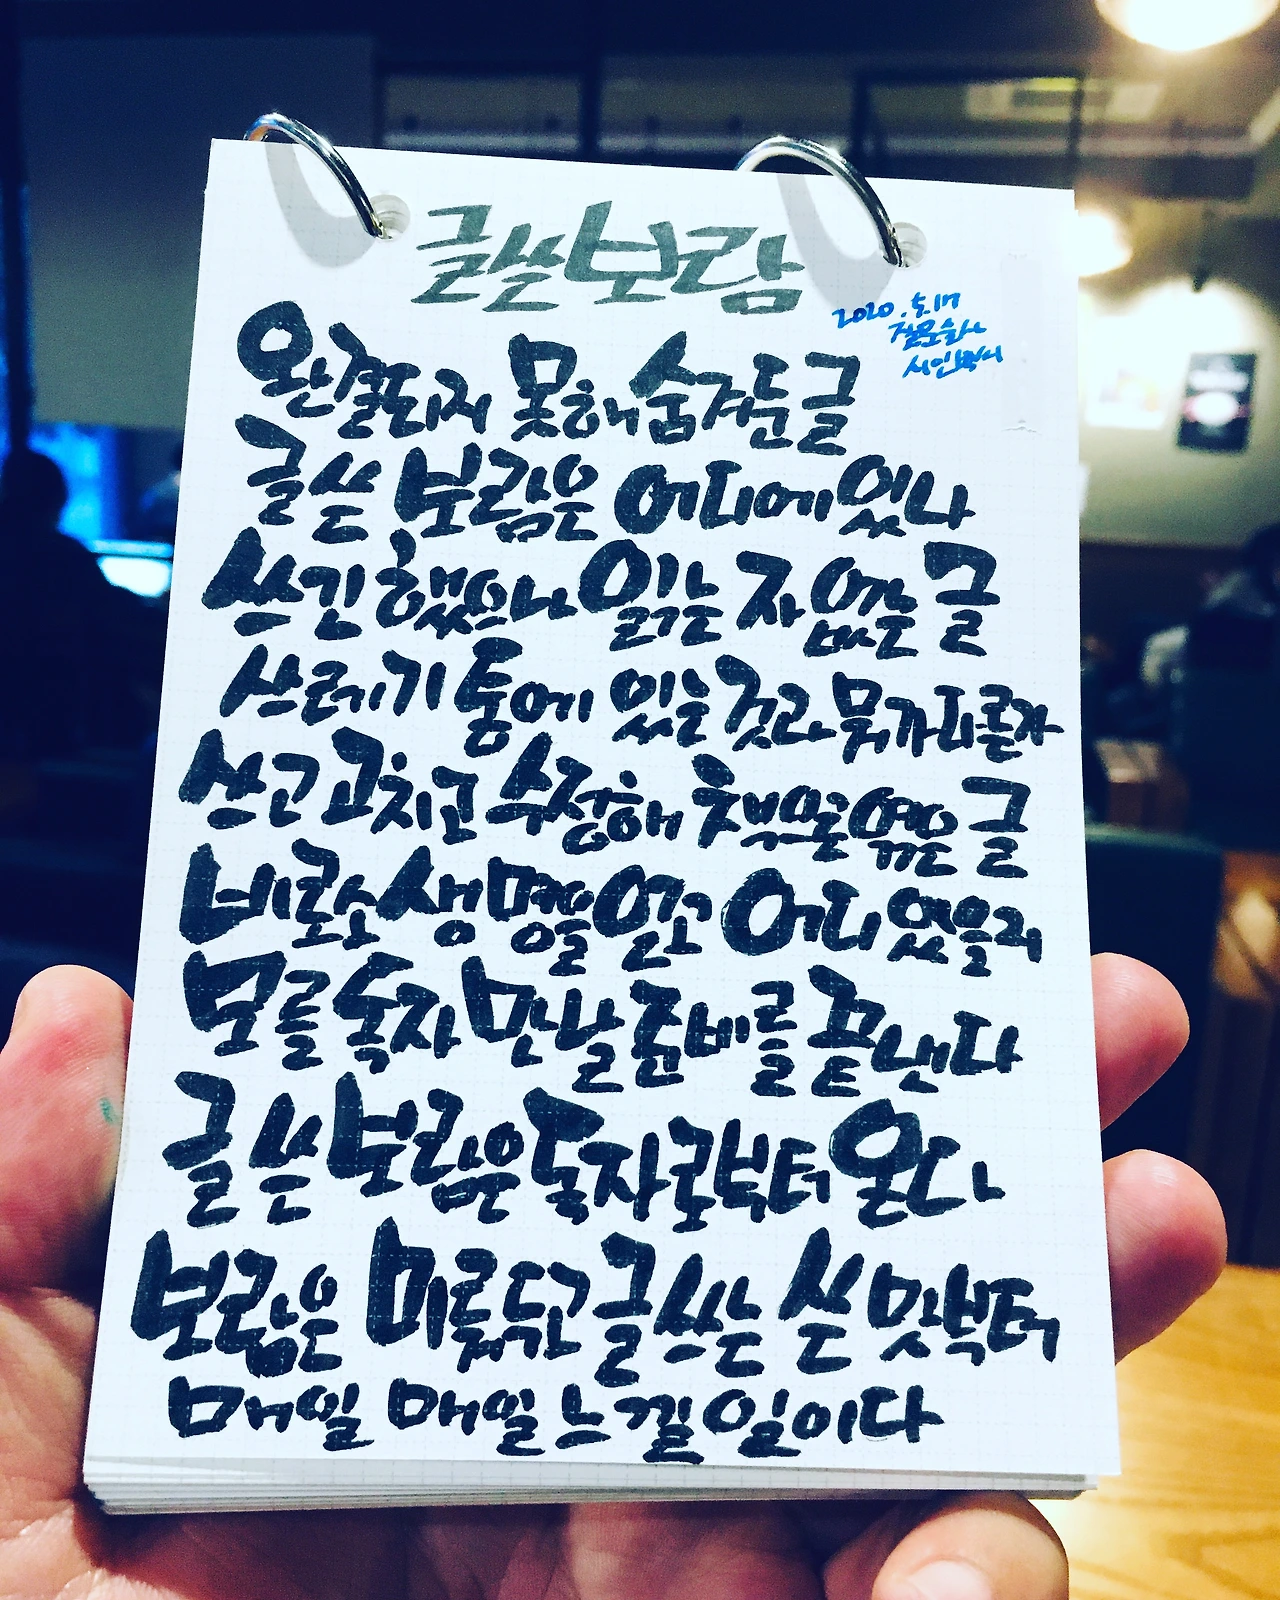 글쓴보람
2020. 5. 17
질문술사
시인박씨
완결되지 못해 숨겨둔 글
글쓴 보람은 어디에 있나
쓰긴 했으나 읽는 자 없는 글
쓰레기통에 있는 것과 뭐가 다를까
쓰고 고치고 수정해 책으로 엮은 글
비로소 생명을 얻고 어디 있을지
모를 독자 만날 준비를 끝낸다
글 쓴 보람은 독자로부터 온다
보람은 미뤄두고 글쓰는 쓴 맛부터
매일 매일 느낄 일이다